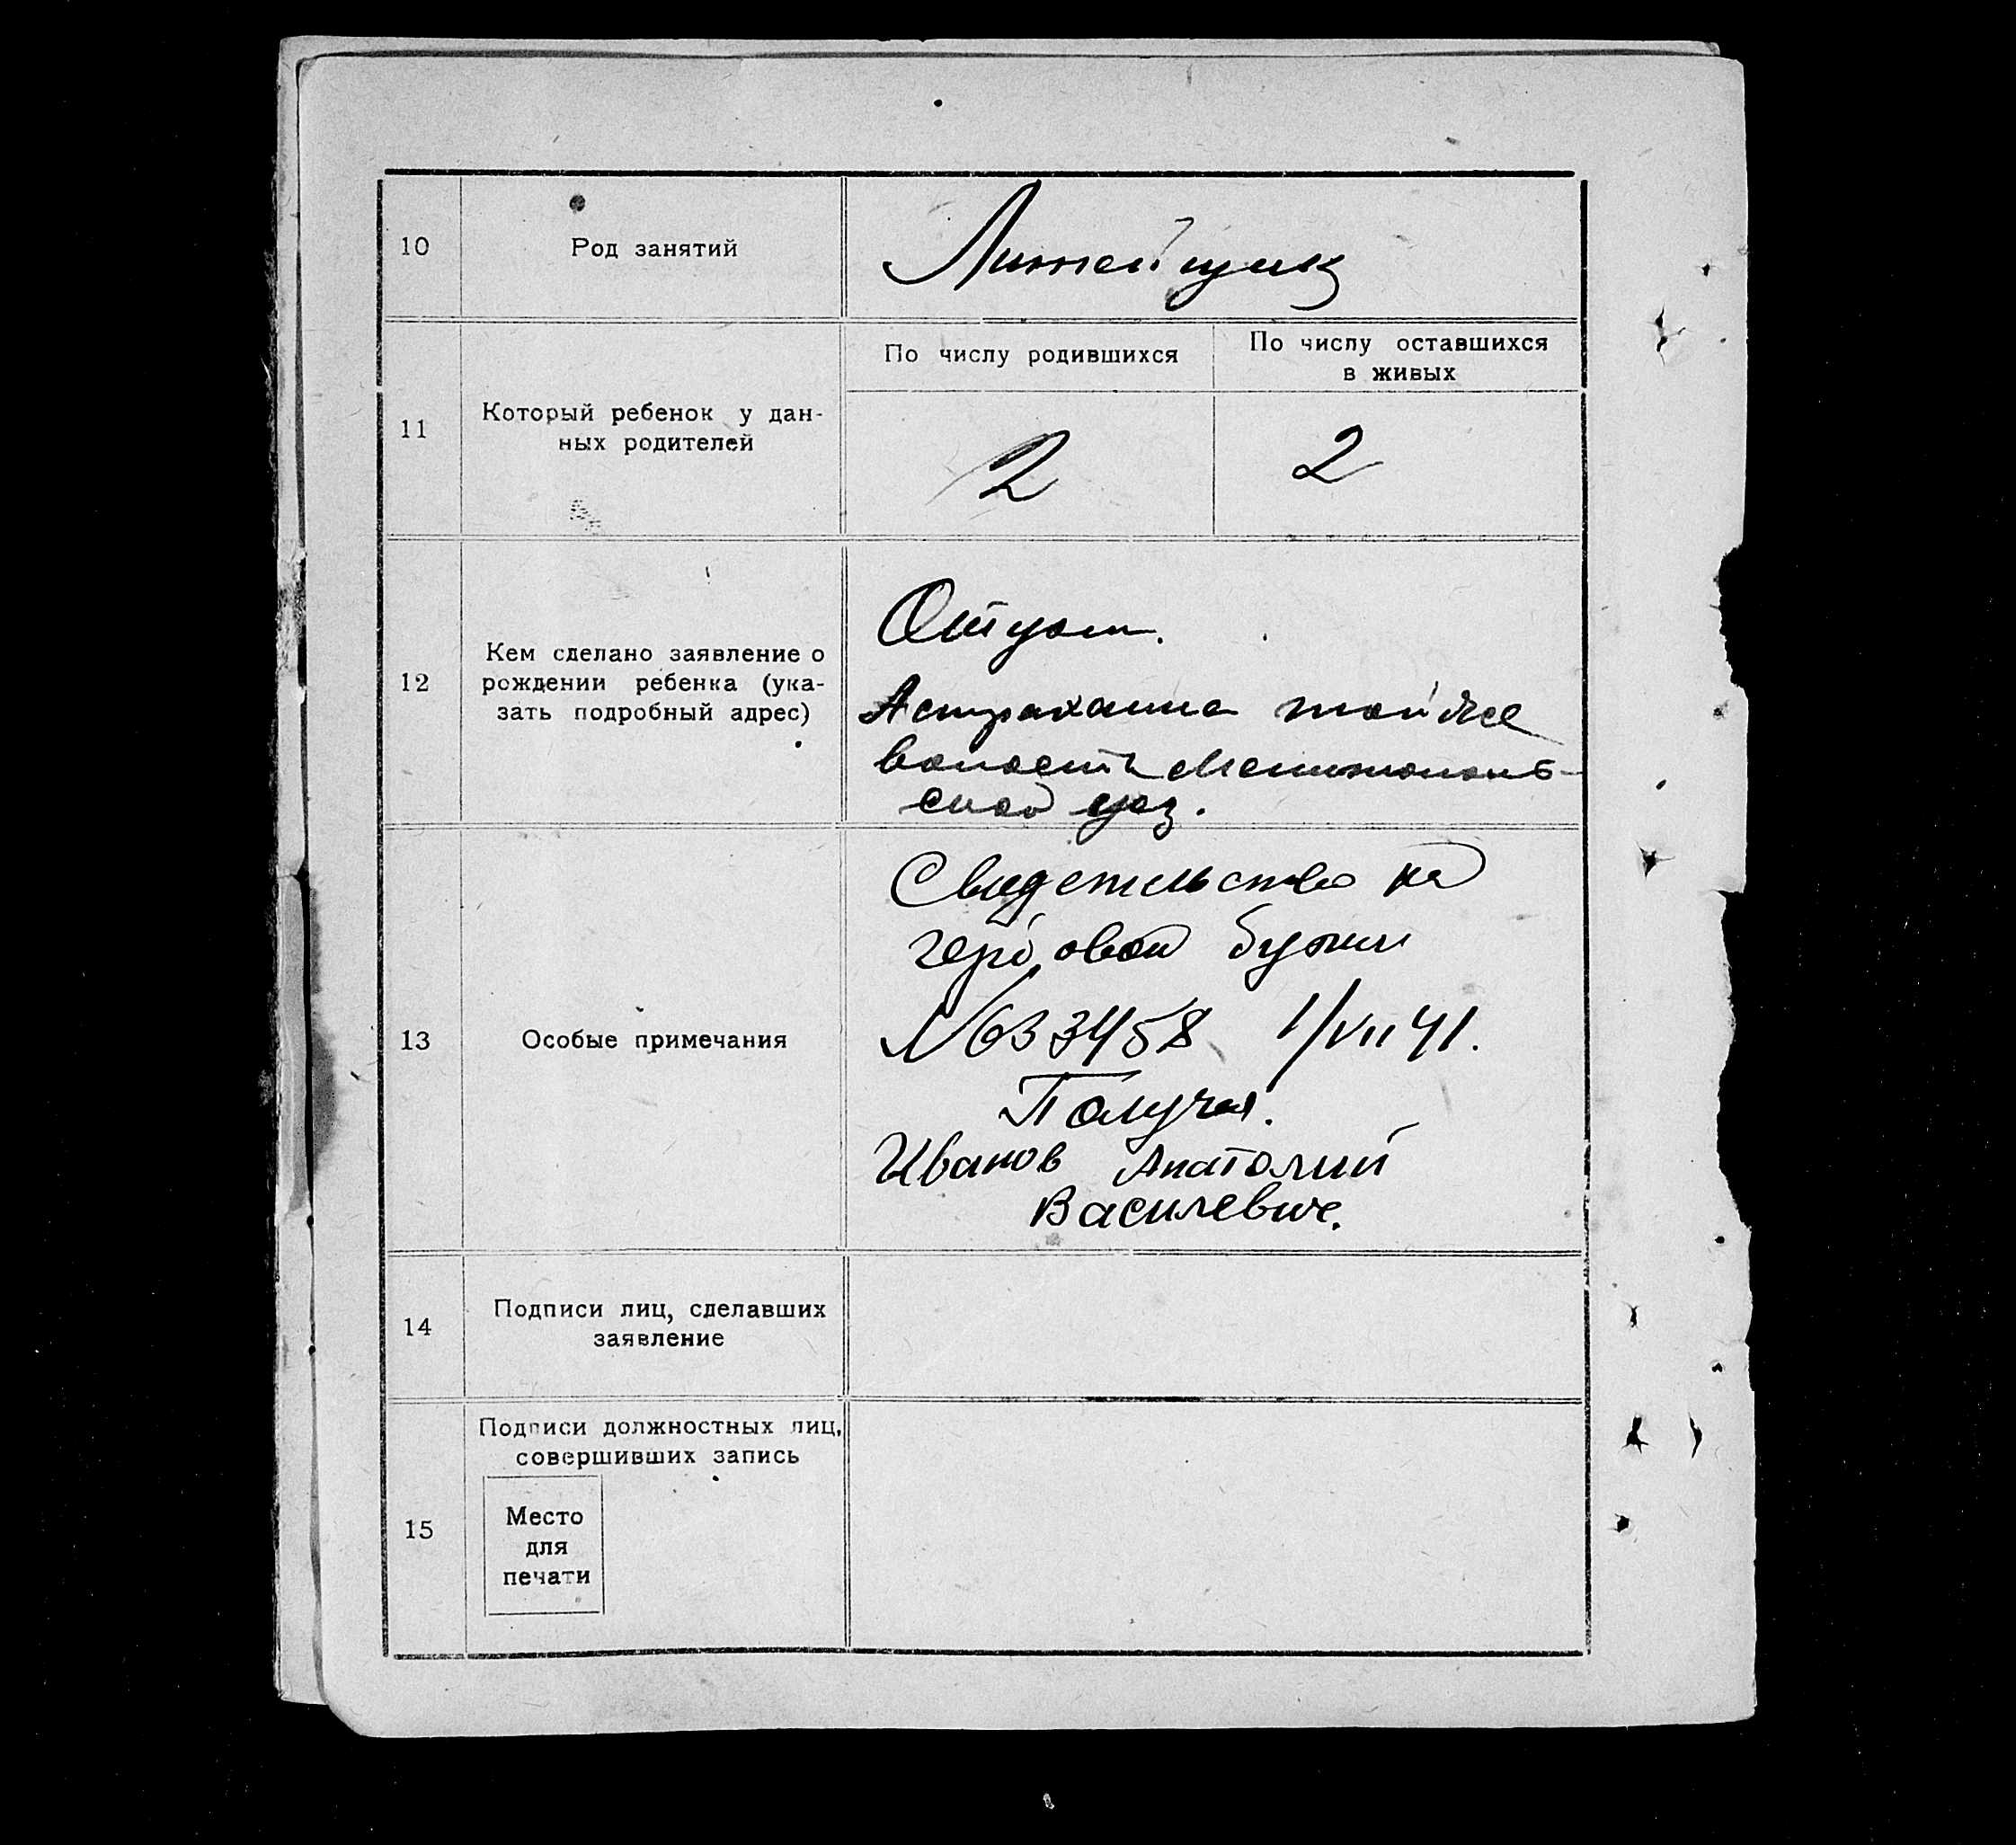 10
Род занятий
Литейщик
11
Который ребенок у дан-
ных родителей
По числу родившихся
По числу оставшихся
в живых
2
2
12
Кем сделано заявление о
рождении ребенка (ука-
зать подробный адрес)
Отцом.
Астраханка той же
волости Мелитополь-
ской уез.
13
Особые примечания
Свидетельство на
гербовой бумаги
№633458 1/VII 41.
Получил.
Иванов Анатолий
Василевич.
14
Подписи лиц, сделавших
заявление
15
Подписи должностных лиц,
совершивших запись
Место
для
печати